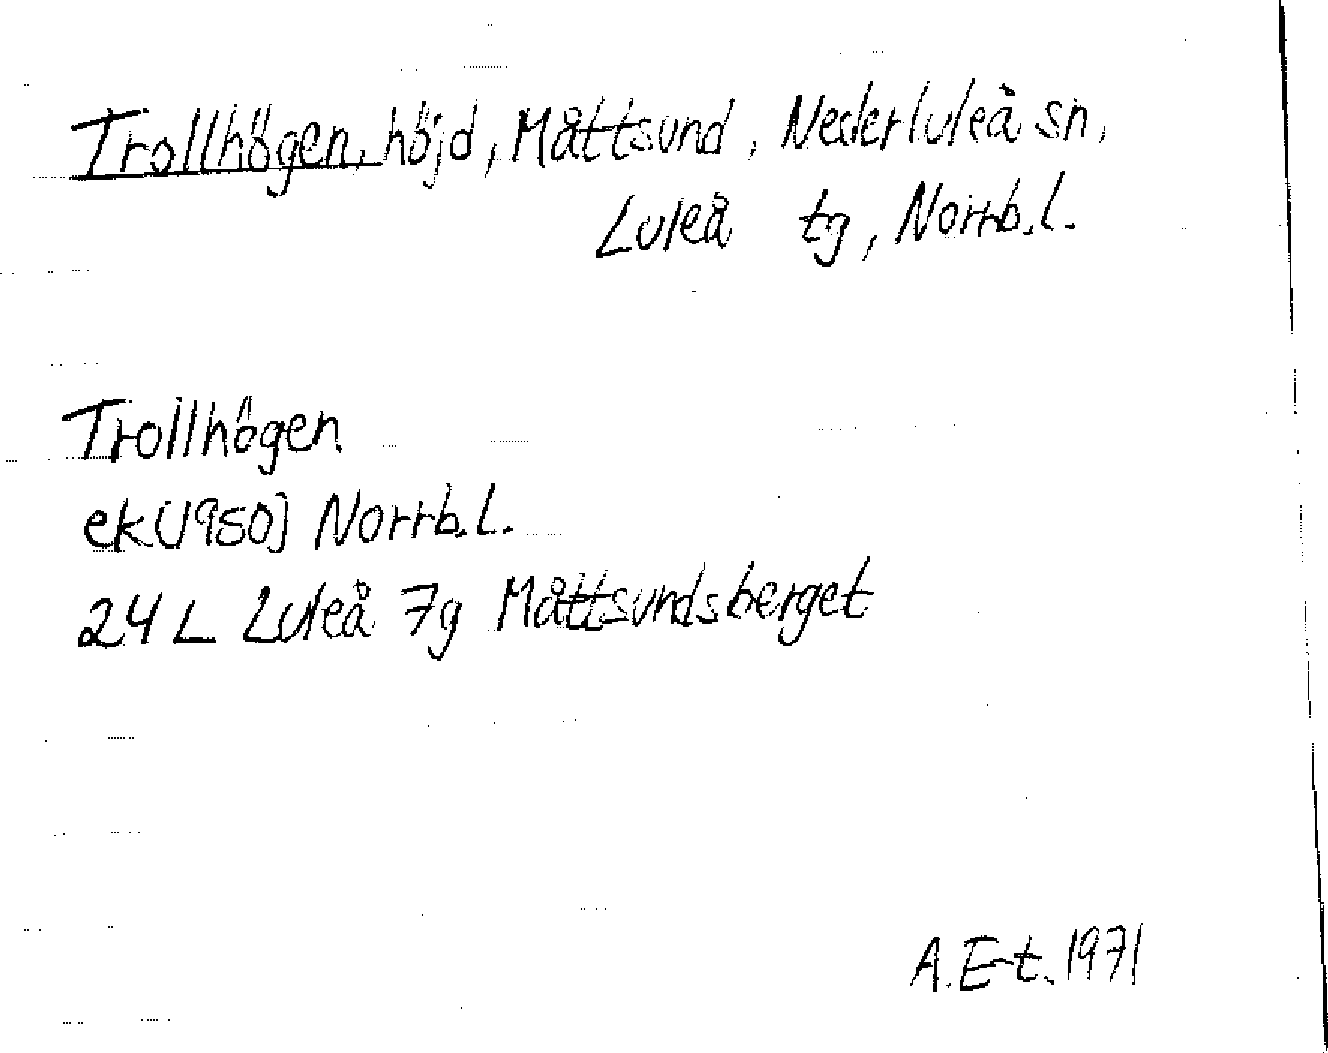 Trollhögen, höjd, Måttsund, Nederluleå sn,
Luleå tg, Norrb.l.
Trollhögen
ek(1950) Norrb.l.
24 L Luleå 7g Måttsundsberget
A.E-t. 1971